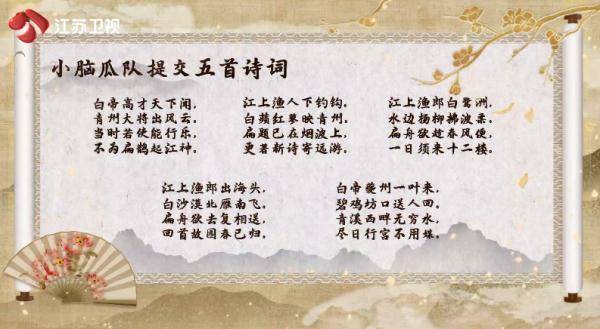 江苏卫视
小脑瓜队提交五首诗词
白帝高才天下闻，
青州大将出风云。
当时若使能行乐，
不为扁鹊起江神。
江上渔人下钓钩，
白蘋红蓼映青州。
扁题已在烟波上，
更著新诗寄远游。
江上渔郎白鹭洲，
水边杨柳拂波柔。
扁舟欲趁春风便，
一日须来十二楼。
江上渔郎出海头，
白沙漠北雁南飞。
扁舟欲去复相送，
回首故园春已归。
白帝夔州一叶来，
碧鸡坊口送人回。
青溪西畔无穷水，
尽日行宫不用媒。